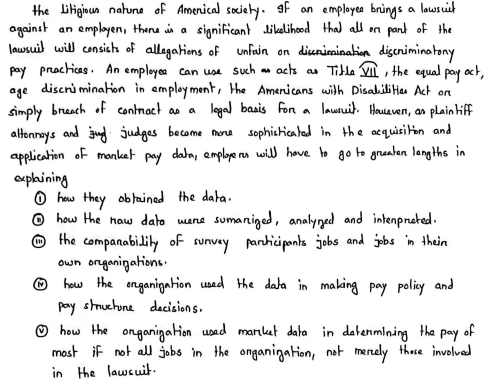 the litigious nature of Americal society. If an employee brings a lawsuit
against an employer, there is a significant likelihood that all or part of the
lawsuit will consists of allegations of unfair or discrimination discriminatory
pay practices. An employee can use such as acts as Title VII, the equal pay act,
age discrimination in employment, the Americans with Disabilities Act or
simply breach of contract as a legal basis for a lawsuit. However, as plaintiff
attorneys and jud judges become more sophisticated in the acquisition and
application of market pay data, employers will have to go to greater lengths in
explaining
(i) how they obtained the data.
(ii) how the raw data were sumarized, analyzed and interpreted.
(iii) the comparability of survey participants jobs and jobs in their
own organizations.
(iv) how the organization used the data in making pay policy and
pay structure decisions.
(v) how the organization used market data in determining the pay of
most if not all jobs in the organization, not merely those involved
in the lawsuit.